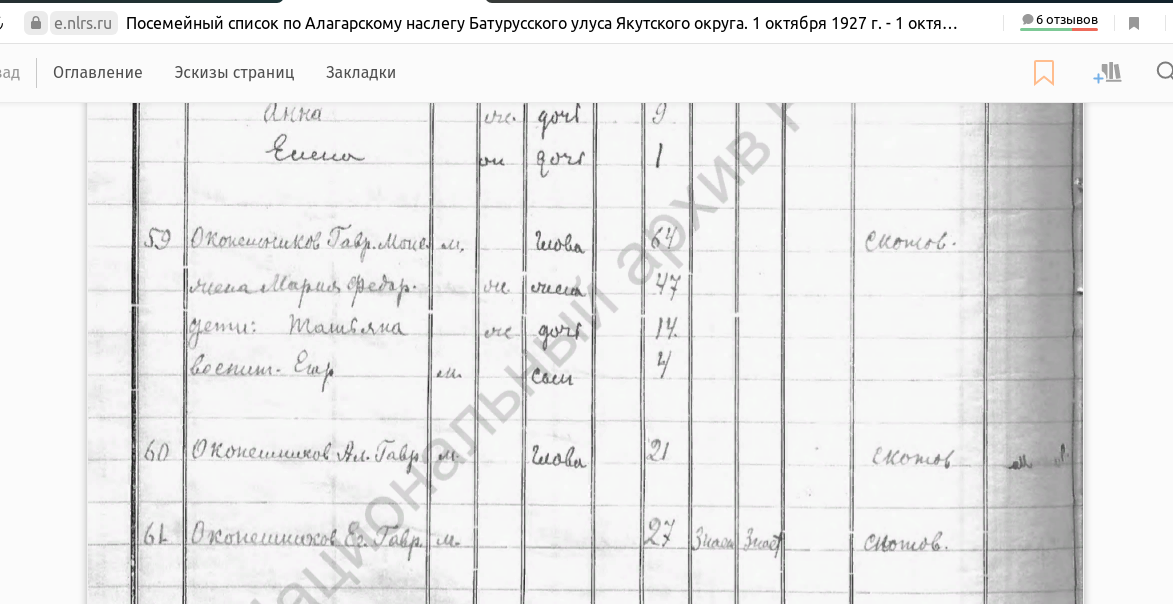 e.nlrs.ru Посемейный список по Алагарскому наслегу Батурусского улуса Якутского округа. 1 октября 1927 г. - 1 октя… 6 отзывов
зад Оглавление Эскизы страниц Закладки
Анна же. дочь 9
Елена же дочь 1
59 Оконешников Гавр. Моис. м. глова 64 скотов.
жена Мария Федор. же. жена 47
дети: Татьяна же дочь 14.
воспит. Егор м. сын 4
60 Оконешников Ал. Гавр м. глова 21 скотов
61 Оконешников Ег. Гавр. м. 27 Знает Знает скотов.
национальный архив